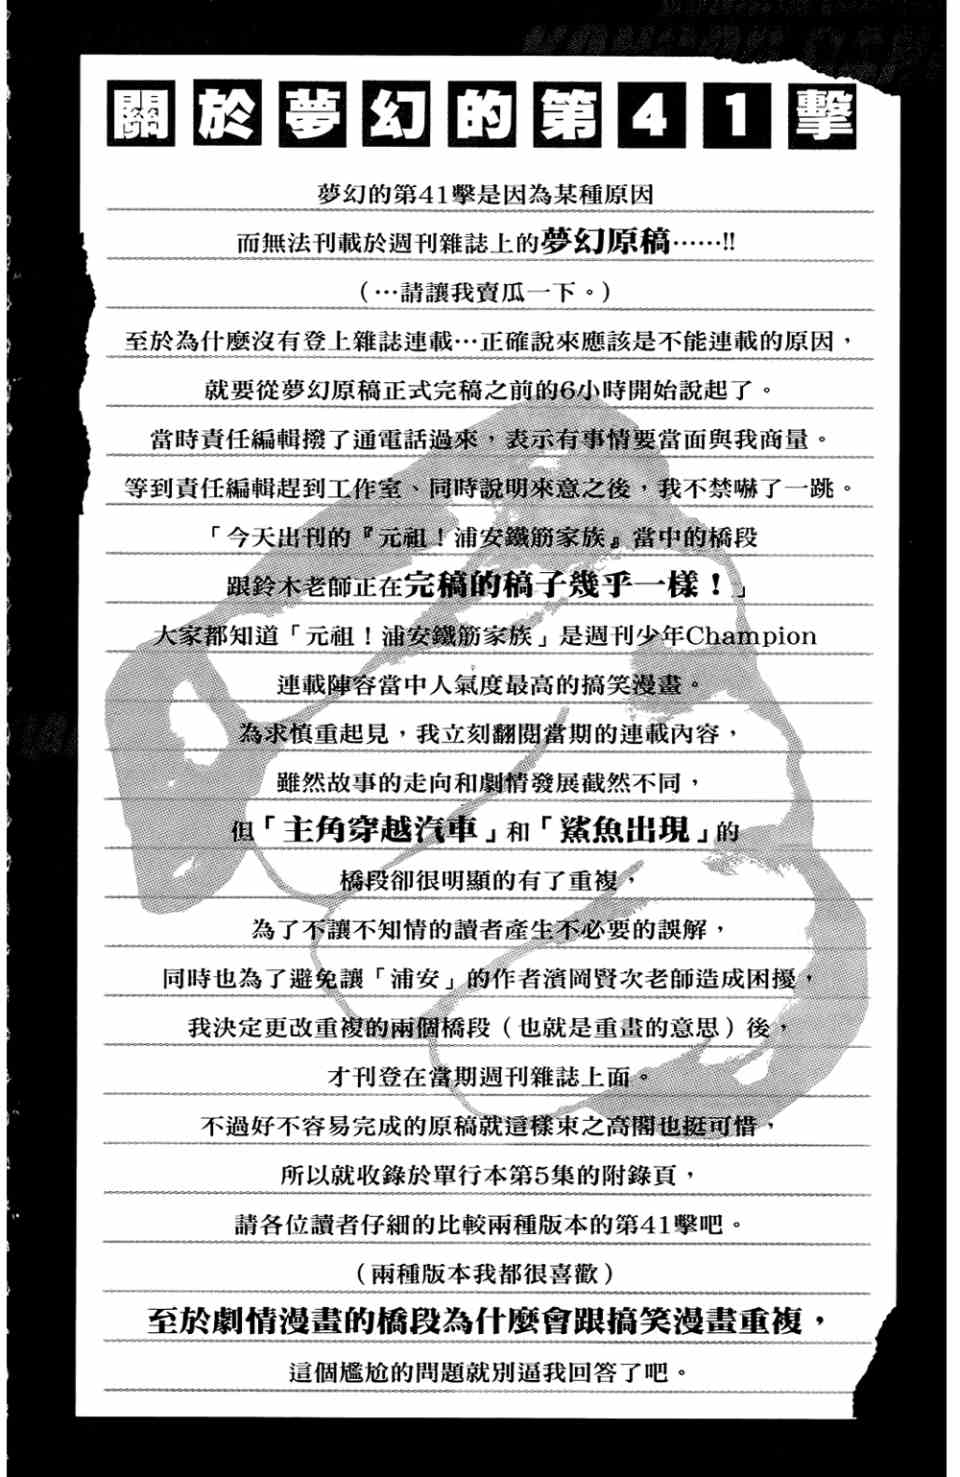 關於夢幻的第41擊
夢幻的第41擊是因為某種原因
而無法刊載於週刊雜誌上的夢幻原稿⋯⋯!!
(⋯請讓我賣瓜一下。)
至於為什麼沒有登上雜誌連載⋯正確說來應該是不能連載的原因，
就要從夢幻原稿正式完稿之前的6小時開始說起了。
當時責任編輯撥了通電話過來，表示有事情要當面與我商量。
等到責任編輯趕到工作室、同時說明來意之後，我不禁嚇了一跳。
「今天出刊的『元祖！浦安鐵筋家族』當中的橋段
跟鈴木老師正在完稿的稿子幾乎一樣！」
大家都知道「元祖！浦安鐵筋家族」是週刊少年Champion
連載陣容當中人氣度最高的搞笑漫畫。
為求慎重起見，我立刻翻閱當期的連載內容，
雖然故事的走向和劇情發展截然不同，
但「主角穿越汽車」和「鯊魚出現」的
橋段卻很明顯的有了重複，
為了不讓不知情的讀者產生不必要的誤解，
同時也為了避免讓「浦安」的作者濱岡賢次老師造成困擾，
我決定更改重複的兩個橋段（也就是重畫的意思）後，
才刊登在當期週刊雜誌上面。
不過好不容易完成的原稿就這樣束之高閣也挺可惜，
所以就收錄於單行本第5集的附錄頁，
請各位讀者仔細的比較兩種版本的第41擊吧。
（兩種版本我都很喜歡）
至於劇情漫畫的橋段為什麼會跟搞笑漫畫重複，
這個尷尬的問題就別逼我回答了吧。